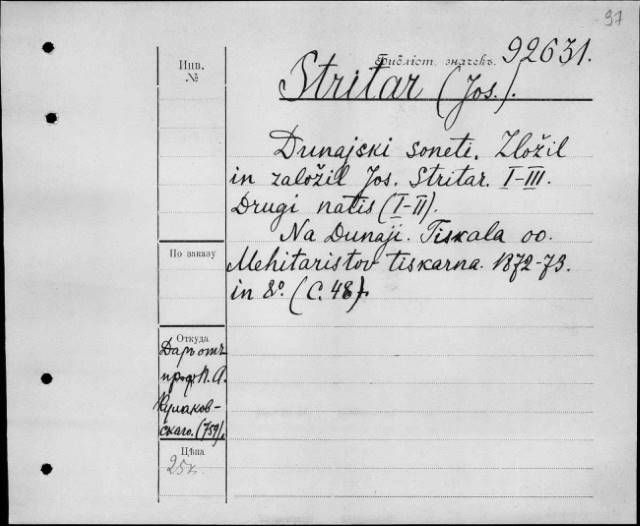 97
Инв.
№
Фибліот. значекъ. 92631.
Stritar (Jos.).
Dunajski soneti. Zložil
in založil Jos. Stritar. I-III.
Drugi natis (I-II).
Na Dunaji. Tiskala oo.
Mehitaristov tiskarna. 1872-73.
По заказу
in 8º. (С. 48).
Откуда
Даръ отъ
проф. П. А.
Кулаков-
скаго. (759).
Цѣна
25к.